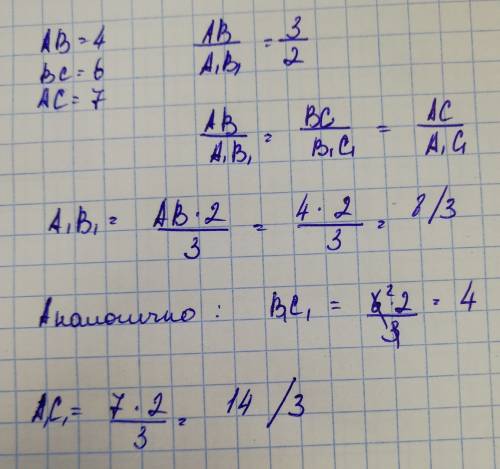 AB = 4
BC = 6
AC = 7
AB / A₁B₁ = 3 / 2
AB / A₁B₁ = BC / B₁C₁ = AC / A₁C₁
A₁B₁ = AB · 2 / 3 = 4 · 2 / 3 = 8/3
Аналогично : B₁C₁ = 6² · 2 / 3₁ = 4
A₁C₁ = 7 · 2 / 3 = 14 / 3